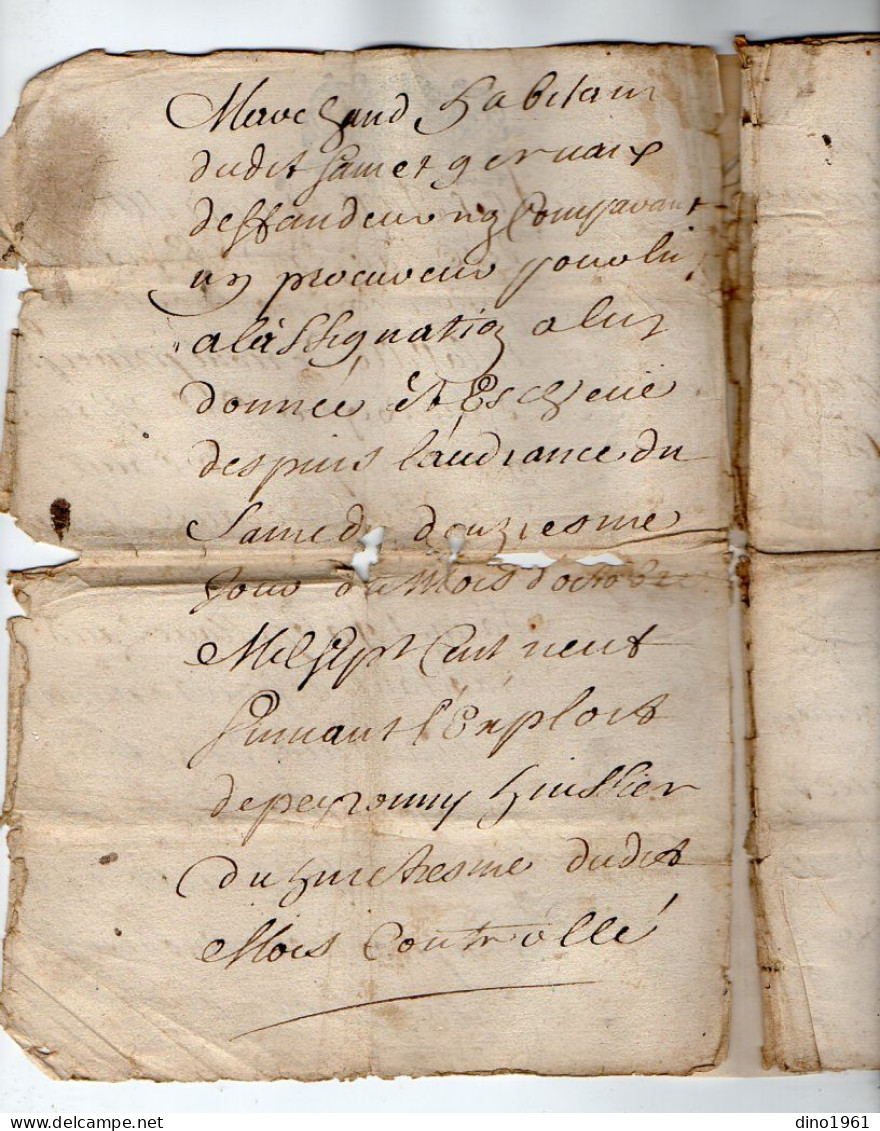 Marchand habitant
dudit sainct gervaix
deffandeur ny Comparant
ny procureur pour luy
a lassignation a luy
donnée et Escheue
despuis l'audiance du
samedy douziesme
jour du Mois d'octobre
Mil sept Cent neuf
suivant l'Exploit
de peyronny huissier
du huictiesme dudit
Mois Controllé
dino1961